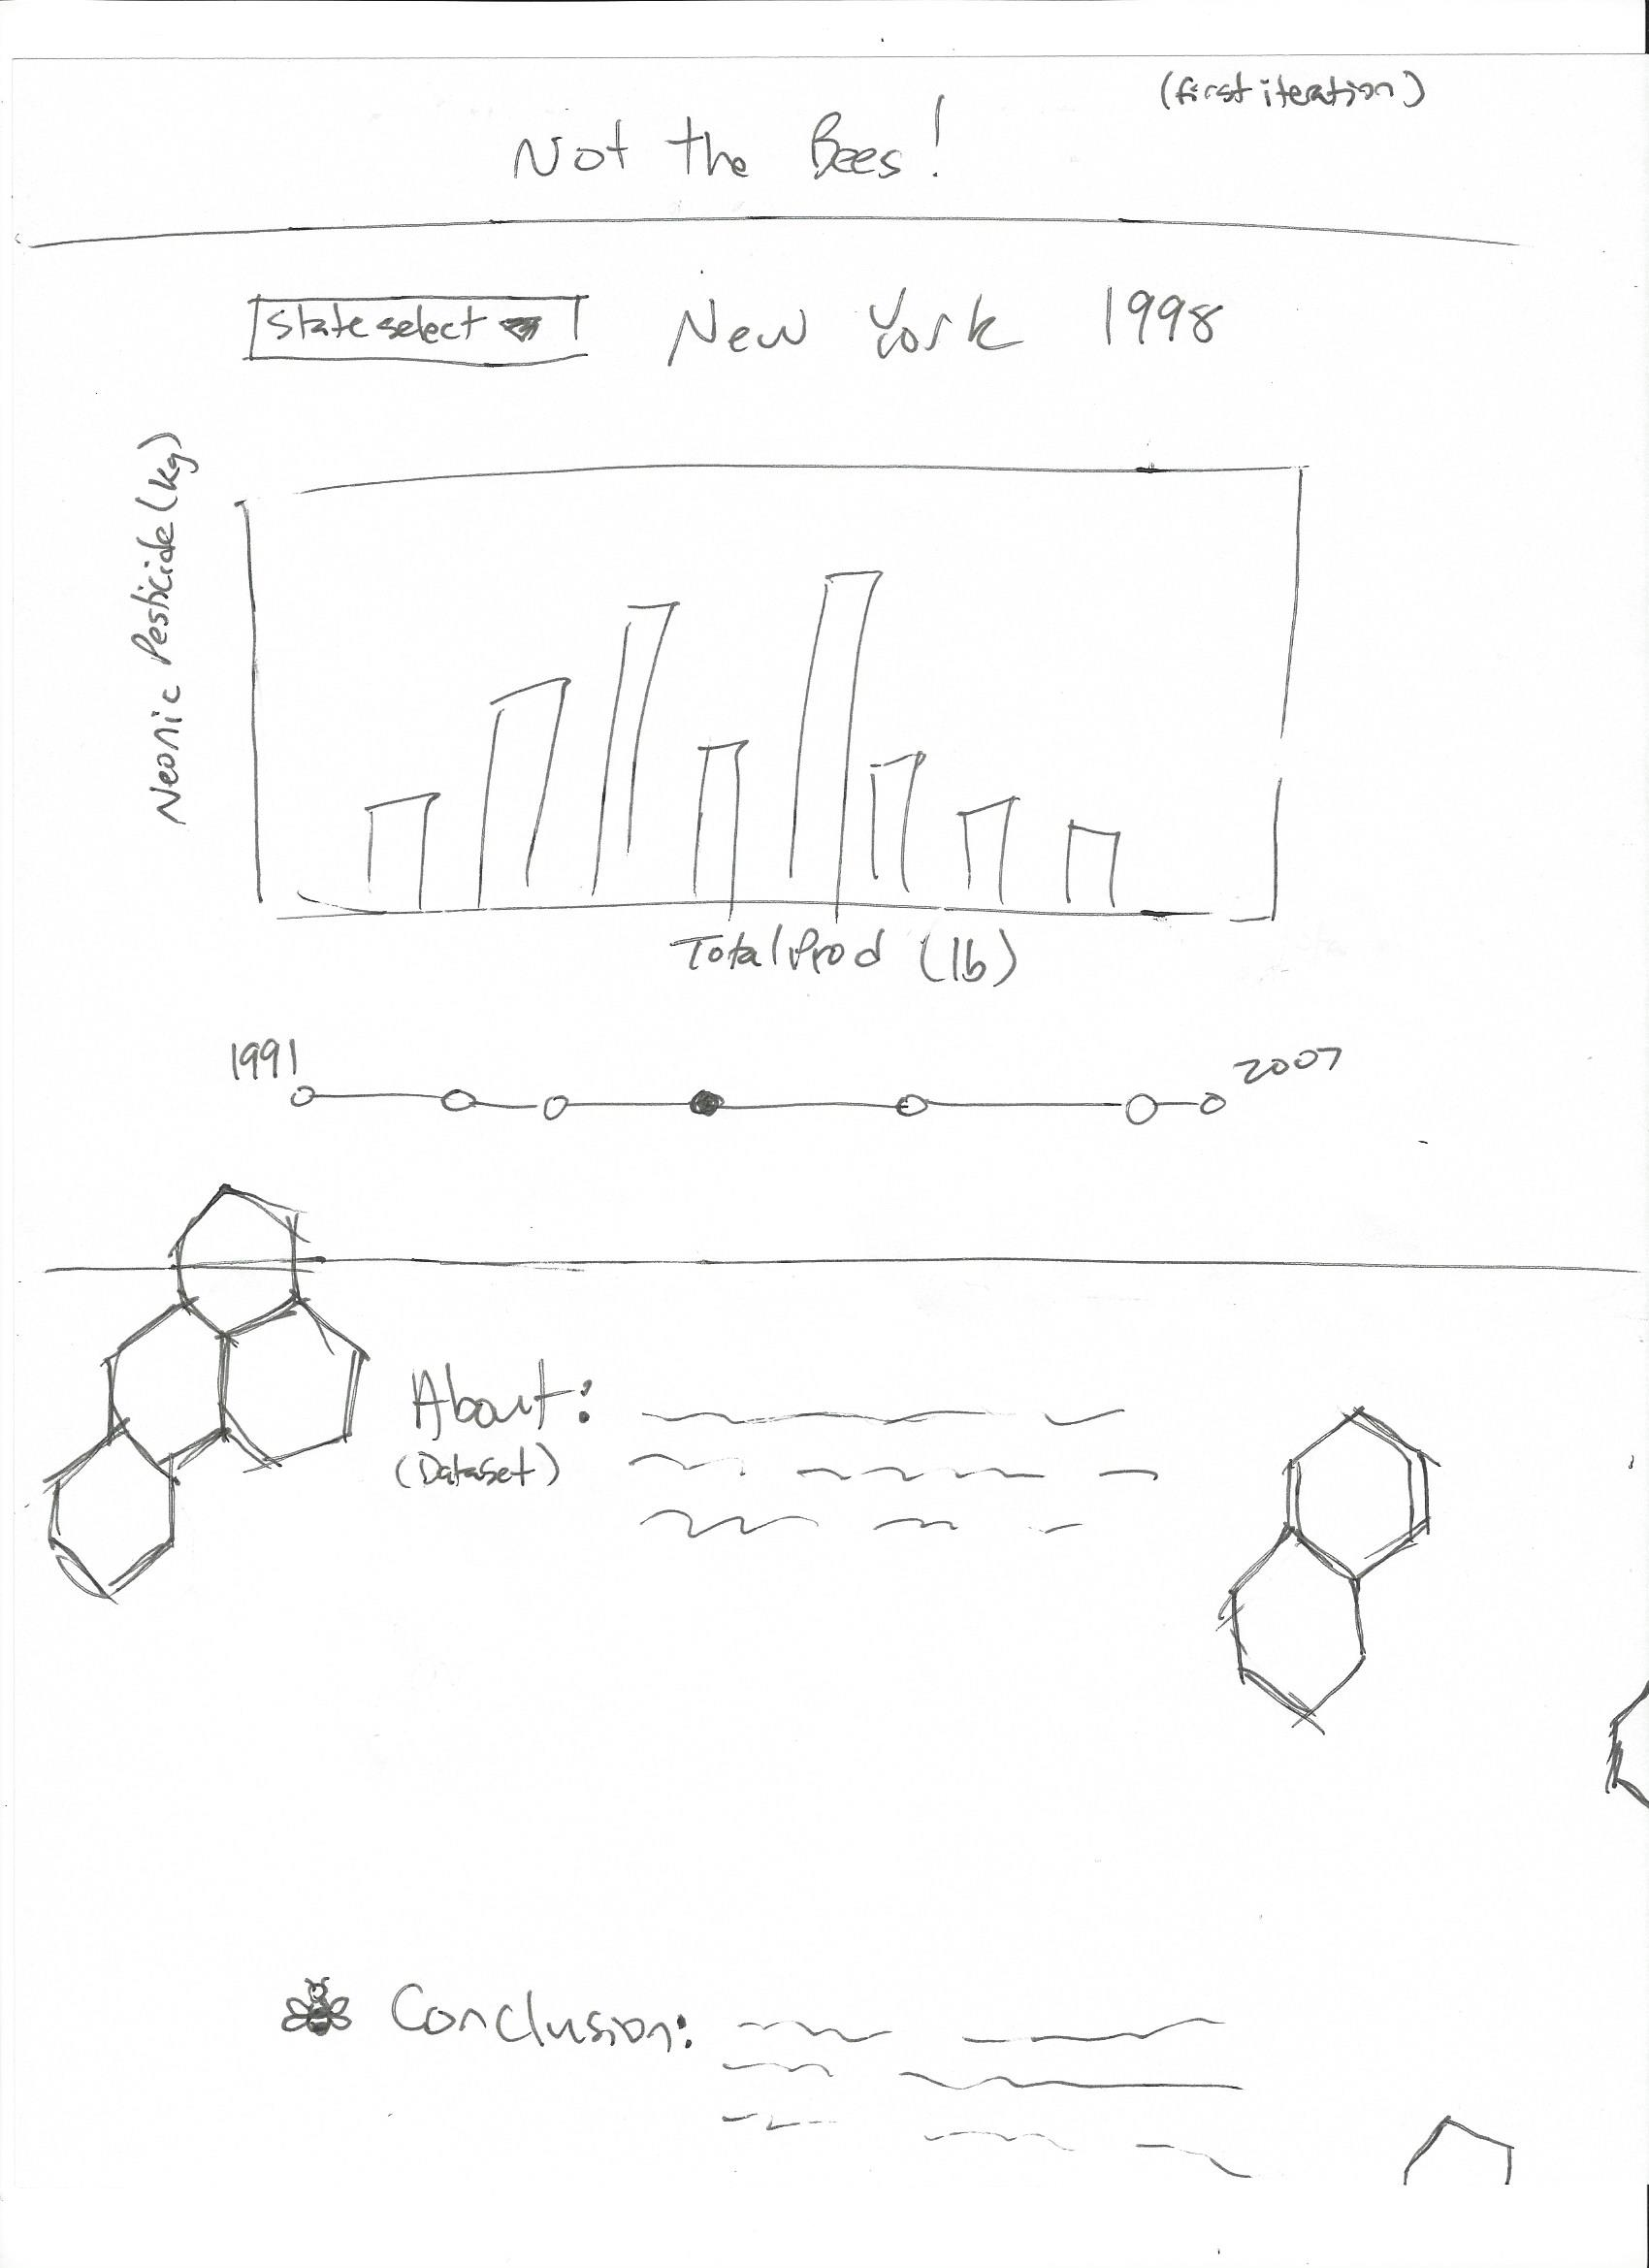 (first iteration)
Not the Bees!
State select
New York 1998
Neonic Pesticide (kg)
Total Prod (lb)
1991
2007
About:
(Dataset)
Conclusion: